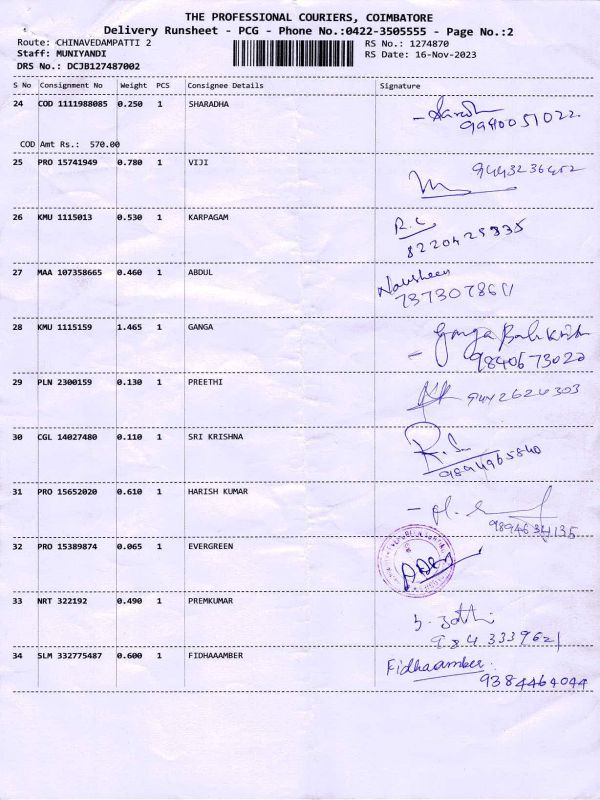 THE PROFESSIONAL COURIERS, COIMBATORE
Delivery Runsheet - PCG - Phone No.:0422-3505555 - Page No.:2
Route: CHINAVEDAMPATTI 2
Staff: MUNIYANDI
DRS No.: DCJB127487002
RS No.: 1274870
RS Date: 16-Nov-2023
S No Consignment No Weight PCS Consignee Details Signature
24 COD 1111988085 0.250 1 SHARADHA
9940051022
COD Amt Rs.: 570.00
25 PRO 15741949 0.780 1 VIJI
26 KMU 1115013 0.530 1 KARPAGAM R.C
8220425335
27 MAA 107358665 0.460 1 ABDUL Nausheen
28 KMU 1115159 1.465 1 GANGA Ganga
9840673020
29 PLN 2300159 0.130 1 PREETHI
30 CGL 14027480 0.110 1 SRI KRISHNA
9894965840
31 PRO 15652020 0.610 1 HARISH KUMAR
9894634135
32 PRO 15389874 0.065 1 EVERGREEN
33 NRT 322192 0.490 1 PREMKUMAR
9843339621
34 SLM 332775487 0.600 1 FIDHAAAMBER Fidhaamber
9384464044